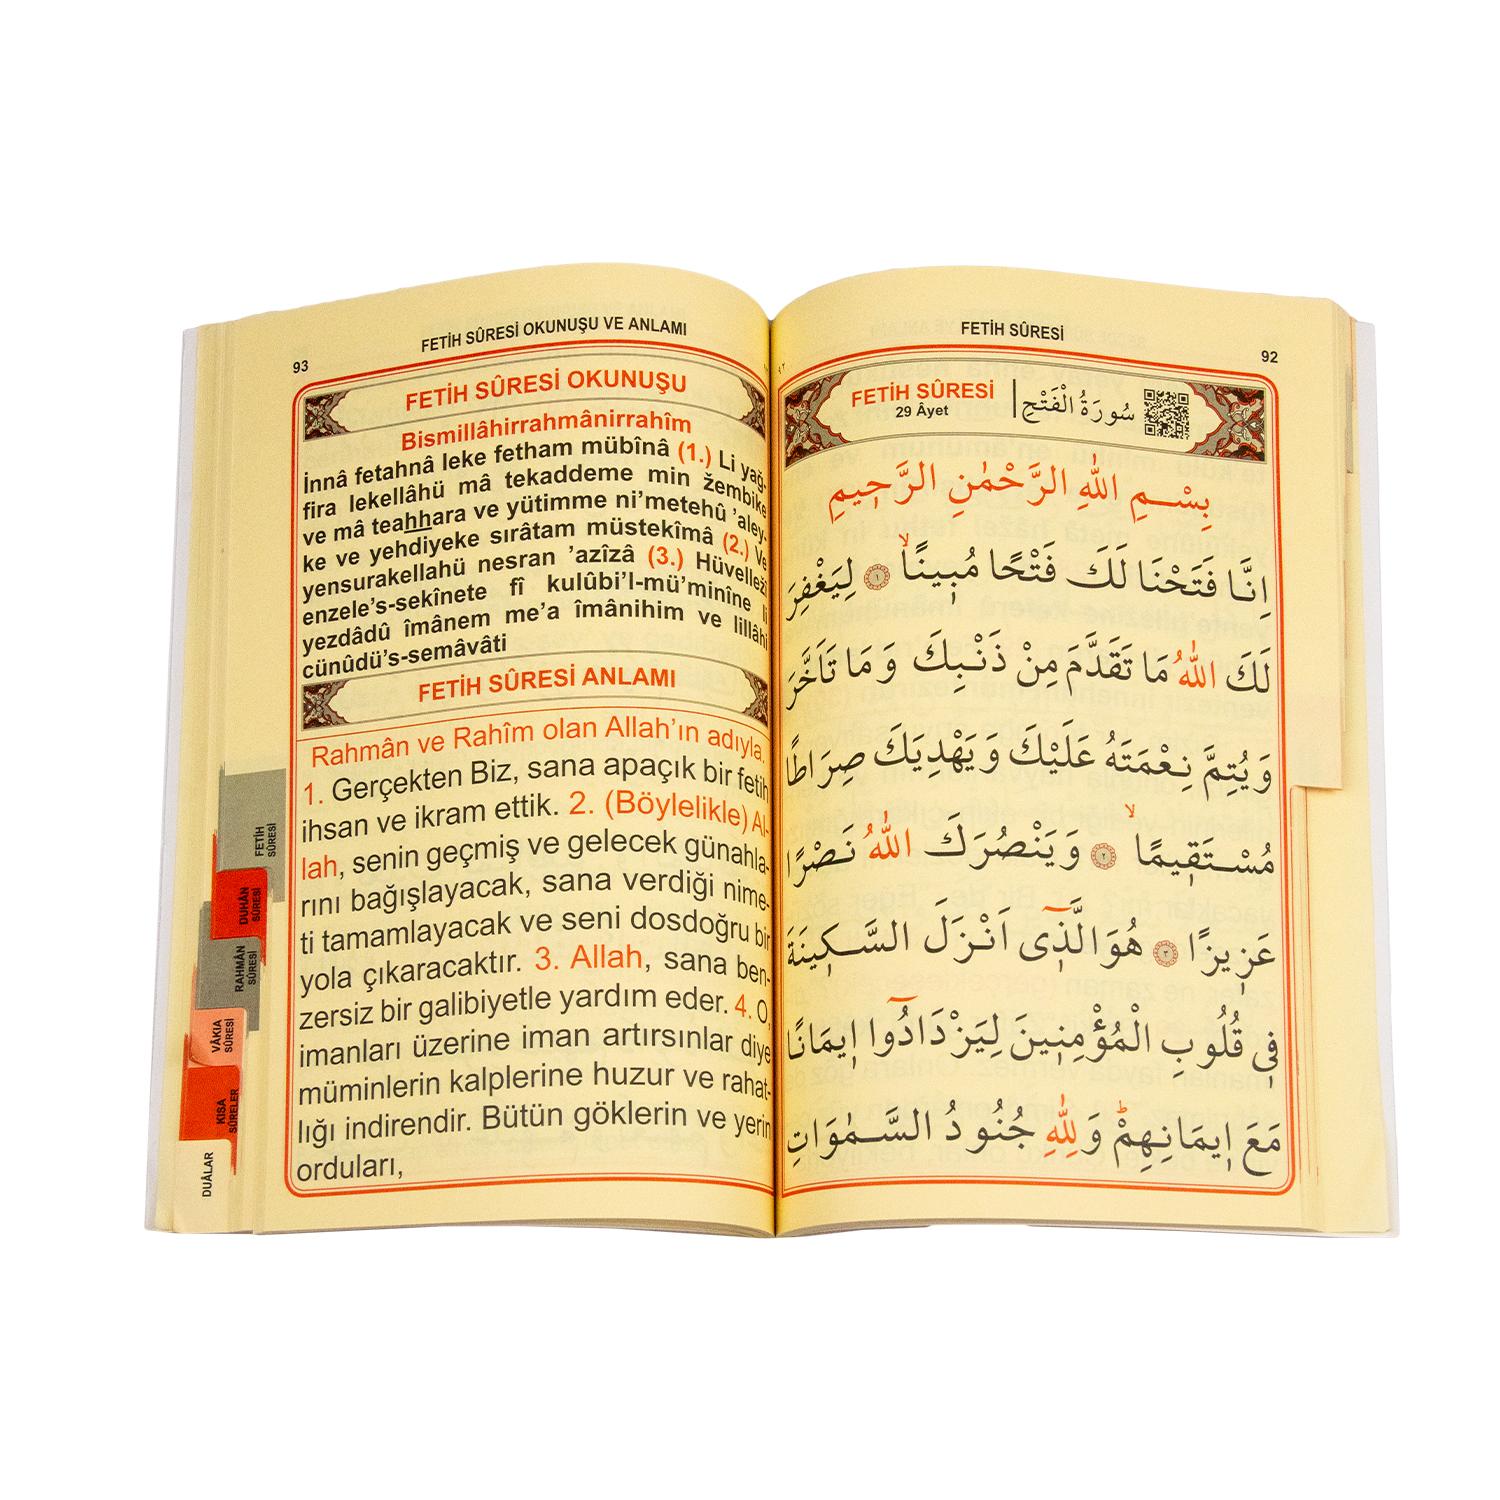 FETİH SÛRESİ
92
FETİH SÛRESİ
29 Âyet
سُورَةُ الْفَتْحِ
بِسْمِ اللهِ الرَّحْمٰنِ الرَّحِيمِ
اِنَّا فَتَحْنَا لَكَ فَتْحًا مُبِينًاۙ ﴿١﴾ لِيَغْفِرَ
لَكَ اللهُ مَا تَقَدَّمَ مِنْ ذَنْبِكَ وَمَا تَاَخَّرَ
وَيُتِمَّ نِعْمَتَهُ عَلَيْكَ وَيَهْدِيَكَ صِرَاطًا
مُسْتَقِيمًاۙ ﴿٢﴾ وَيَنْصُرَكَ اللهُ نَصْرًا
عَزِيزًا ﴿٣﴾ هُوَ الَّذِٓى اَنْزَلَ السَّكِينَةَ
فِى قُلُوبِ الْمُؤْمِنِينَ لِيَزْدَادُٓوا اِيمَانًا
مَعَ اِيمَانِهِمْۜ وَلِلّٰهِ جُنُودُ السَّمٰوَاتِ
FETİH SÛRESİ OKUNUŞU VE ANLAMI
93
FETİH SÛRESİ OKUNUŞU
Bismillâhirrahmânirrahîm
İnnâ fetahnâ leke fetham mübînâ (1.) Li yağ-
fira lekellâhü mâ tekaddeme min žembike
ve mâ teahhara ve yütimme ni'metehû 'aley-
ke ve yehdiyeke sırâtam müstekîmâ (2.) Ve
yensurakellahü nesran 'azîzâ (3.) Hüvelležî
enzele's-sekînete fî kulûbi'l-mü'minîne li
yezdâdû îmânem me'a îmânihim ve lillâhi
cünûdü's-semâvâti
FETİH SÛRESİ ANLAMI
Rahmân ve Rahîm olan Allah'ın adıyla.
1. Gerçekten Biz, sana apaçık bir fetih
ihsan ve ikram ettik. 2. (Böylelikle) Al-
lah, senin geçmiş ve gelecek günahla-
rını bağışlayacak, sana verdiği nime-
ti tamamlayacak ve seni dosdoğru bir
yola çıkaracaktır. 3. Allah, sana ben-
zersiz bir galibiyetle yardım eder. 4. O,
imanları üzerine iman artırsınlar diye
müminlerin kalplerine huzur ve rahat-
lığı indirendir. Bütün göklerin ve yerin
orduları,
FETİH
SÛRESİ
DUHÂN
SÛRESİ
RAHMÂN
SÛRESİ
VÂKIA
SÛRESİ
KISA
SÛRELER
DUÂLAR